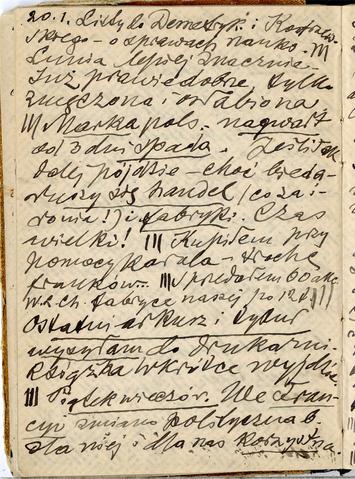 20.I. Listy do Demetryk. i
skiego - o sprawach nauko. |||
Lunia lepiej znacznie -
Już prawie dobrze, tylko
zmęczona i osłabiona
||| Marka pols. nagwałt
od 3 dni spada. Jeśli tak
dalej pójdzie - choć
ruszy się handel (co za i-
ronia!) i fabryki. Czas
wielki! ||| Kupiłem przy
pomocy Karola - trochę
franków. - ||| Sprzedałem 60 akc.
W. z. ch. fabryce naszej po 12 |||
Ostatni arkusz i tytuł
wysyłam do drukarni.
Książka wkrótce wyjdzie.
||| Piątek wieczór. We Fran-
cyi zmiana polityczna
dla niej i dla nas korzystna.